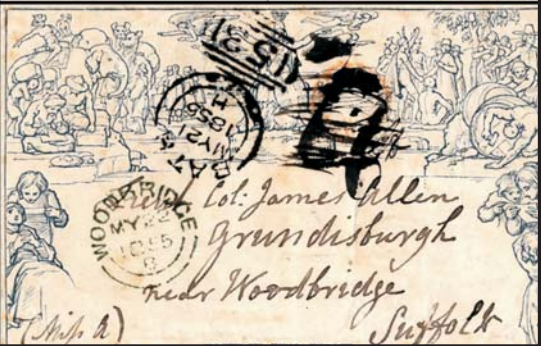 53
BATH
MY 21
1855
H
WOODBRIDGE
MY 22
1855
Col: James Allen
Grundisburgh
near Woodbridge
Suffolk
(Miss A)